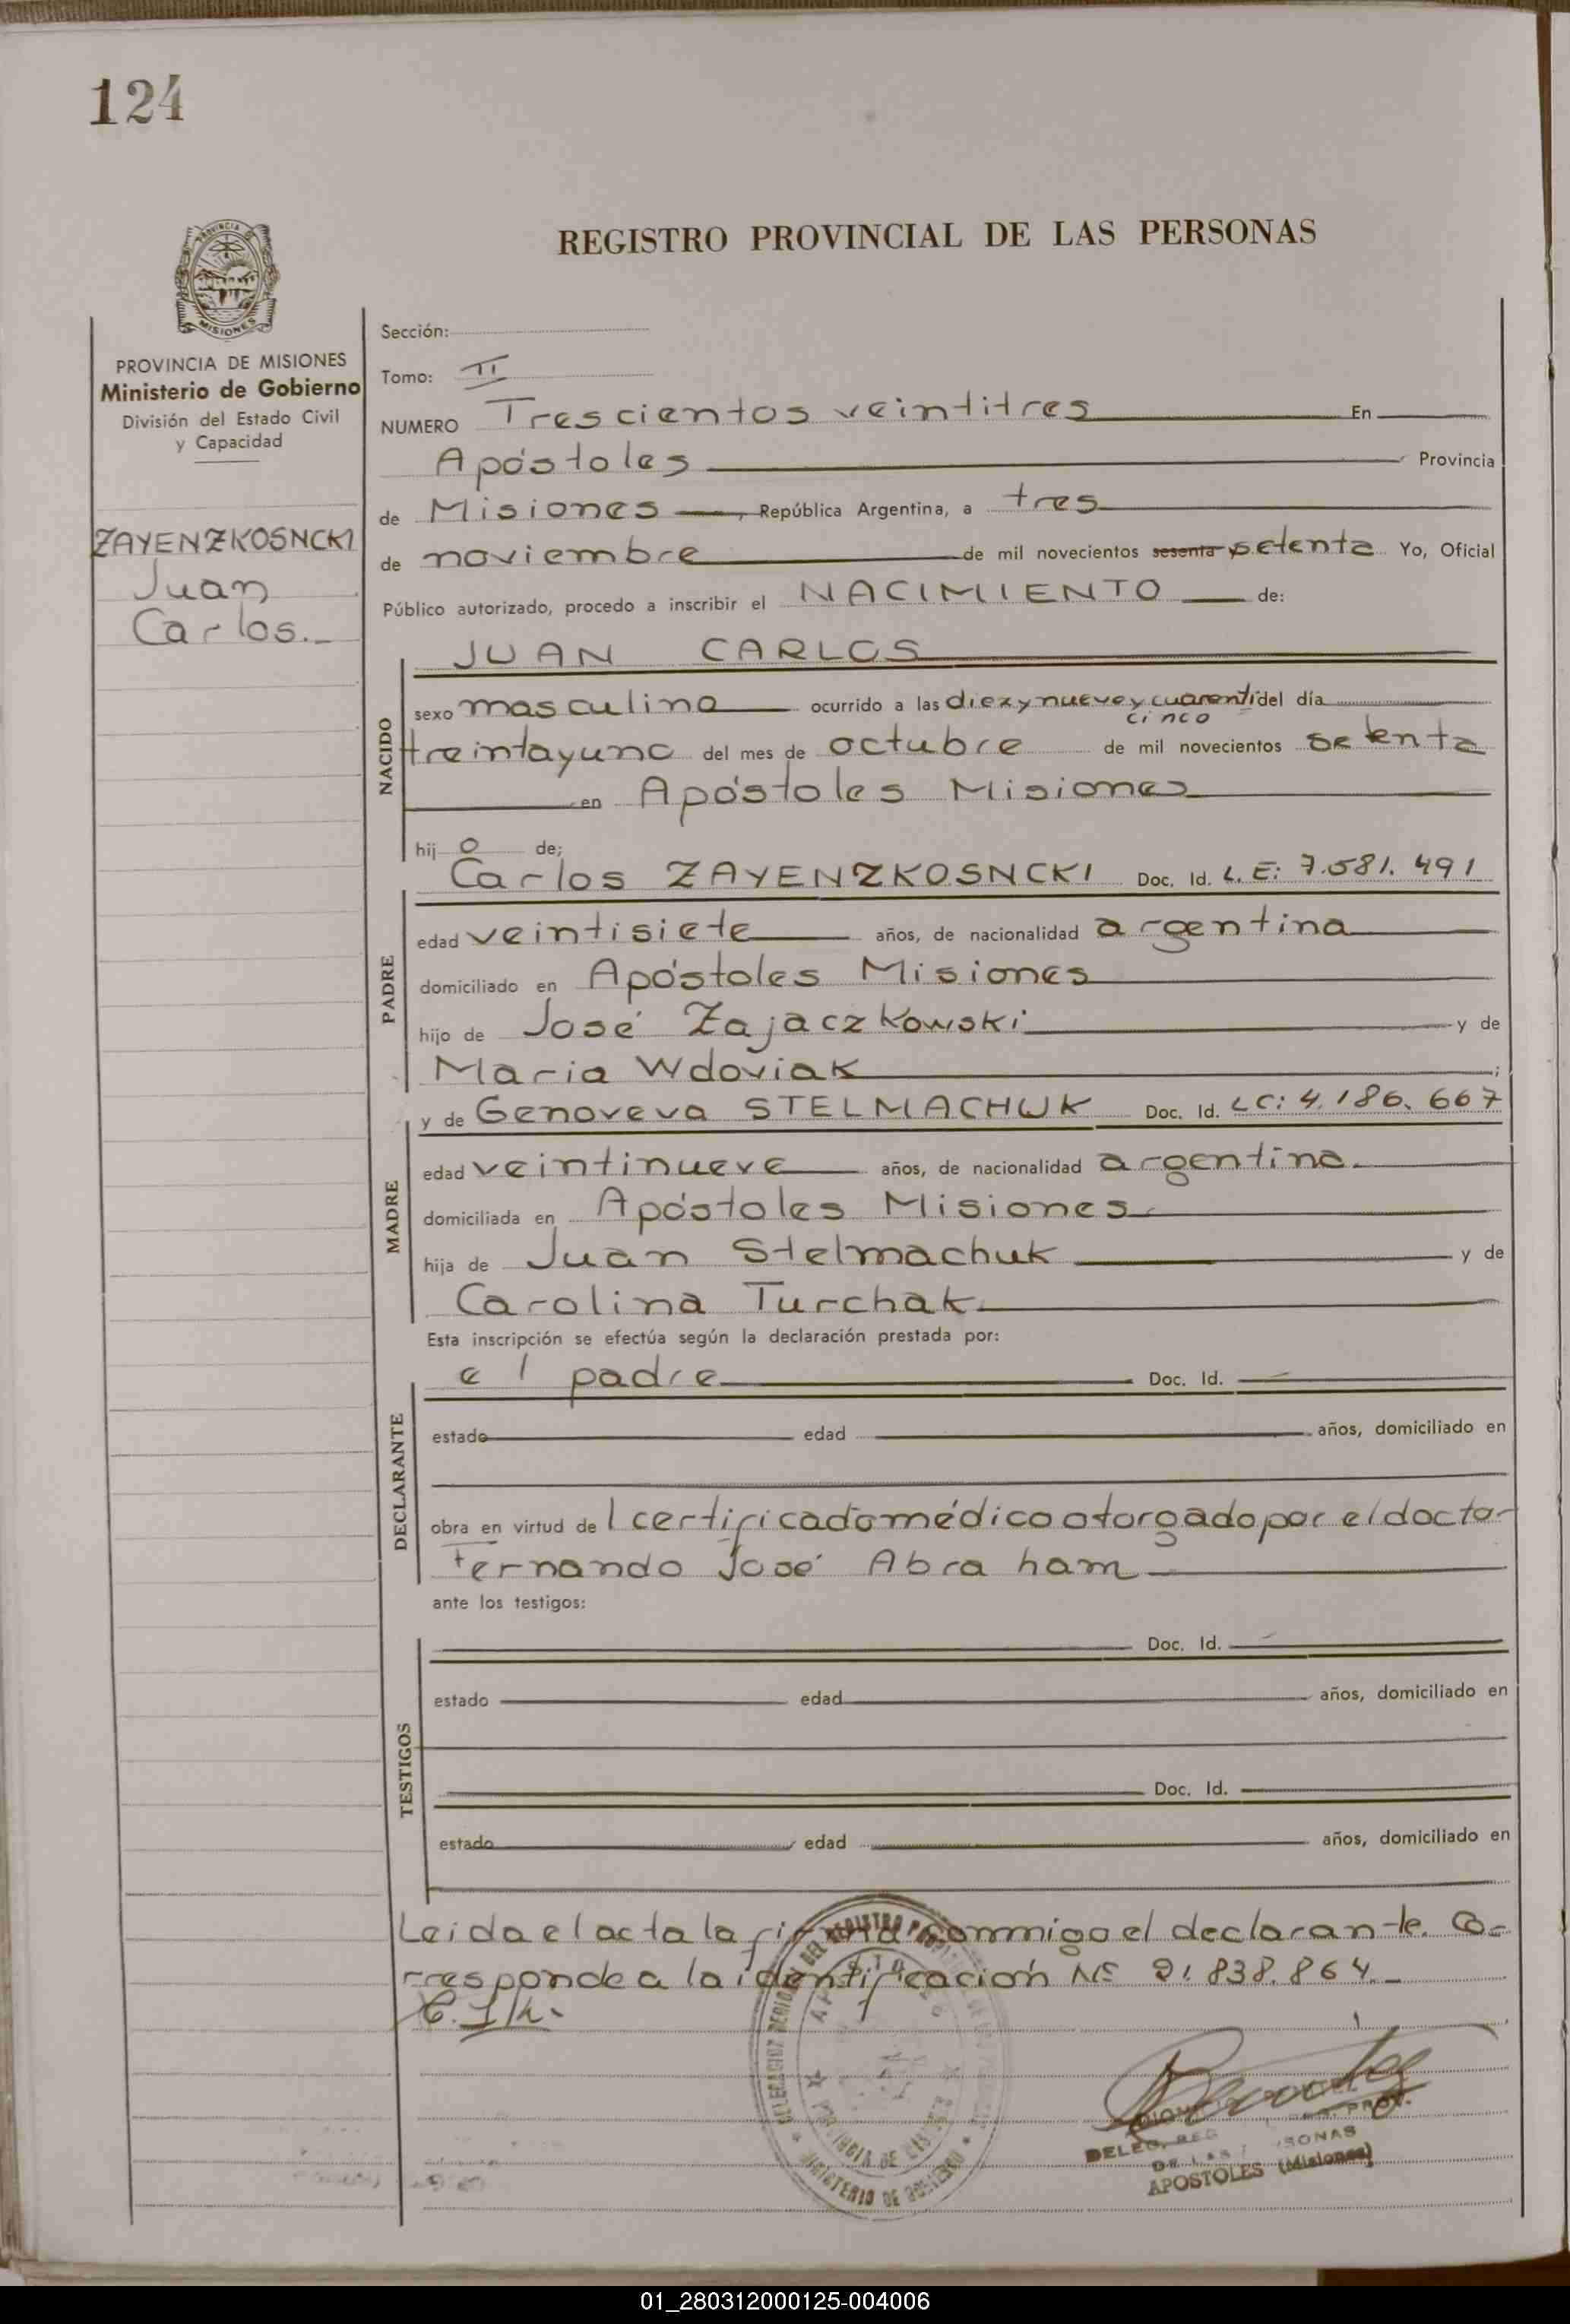 124
PROVINCIA DE
MISIONES
PROVINCIA DE MISIONES
Ministerio de Gobierno
División del Estado Civil
y Capacidad
ZAYENZKOSNCKI
Juan
Carlos.-
REGISTRO PROVINCIAL DE LAS PERSONAS
Sección:
Tomo: II
NUMERO Trescientos veintitres En
Apóstoles Provincia
de Misiones, República Argentina, a tres
de noviembre de mil novecientos sesenta y setenta Yo, Oficial
Público autorizado, procedo a inscribir el NACIMIENTO de:
NACIDO
JUAN CARLOS
sexo masculino ocurrido a las diez y nueve y cuarenti del día
cinco
treintayuno del mes de octubre de mil novecientos setenta
en Apóstoles Misiones
hij o de;
PADRE
Carlos ZAYENZKOSNCKI Doc. Id. L.E: 7.581.491
edad veintisiete años, de nacionalidad argentina
domiciliado en Apóstoles Misiones
hijo de José Zajaczkowski y de
Maria Wdoviak ;
MADRE
y de Genoveva STELMACHUK Doc. Id. LC: 4.186.667
edad veintinueve años, de nacionalidad argentina.
domiciliada en Apóstoles Misiones
hija de Juan Stelmachuk y de
Carolina Turchak
Esta inscripción se efectúa según la declaración prestada por:
DECLARANTE
el padre Doc. Id.
estado edad años, domiciliado en
obra en virtud del certificado médico otorgado por el doctor
Fernando José Abraham
ante los testigos:
TESTIGOS
Doc. Id.
estado edad años, domiciliado en
Doc. Id.
estado edad años, domiciliado en
Leida el acta la firma conmigo el declarante. Co-
rresponde a la identificación Nº 21.838.864.-
MINISTERIO DE GOBIERNO
DELEG. REG
PROV.
DE LAS PERSONAS
APOSTOLES (Misiones)
01_280312000125-004006